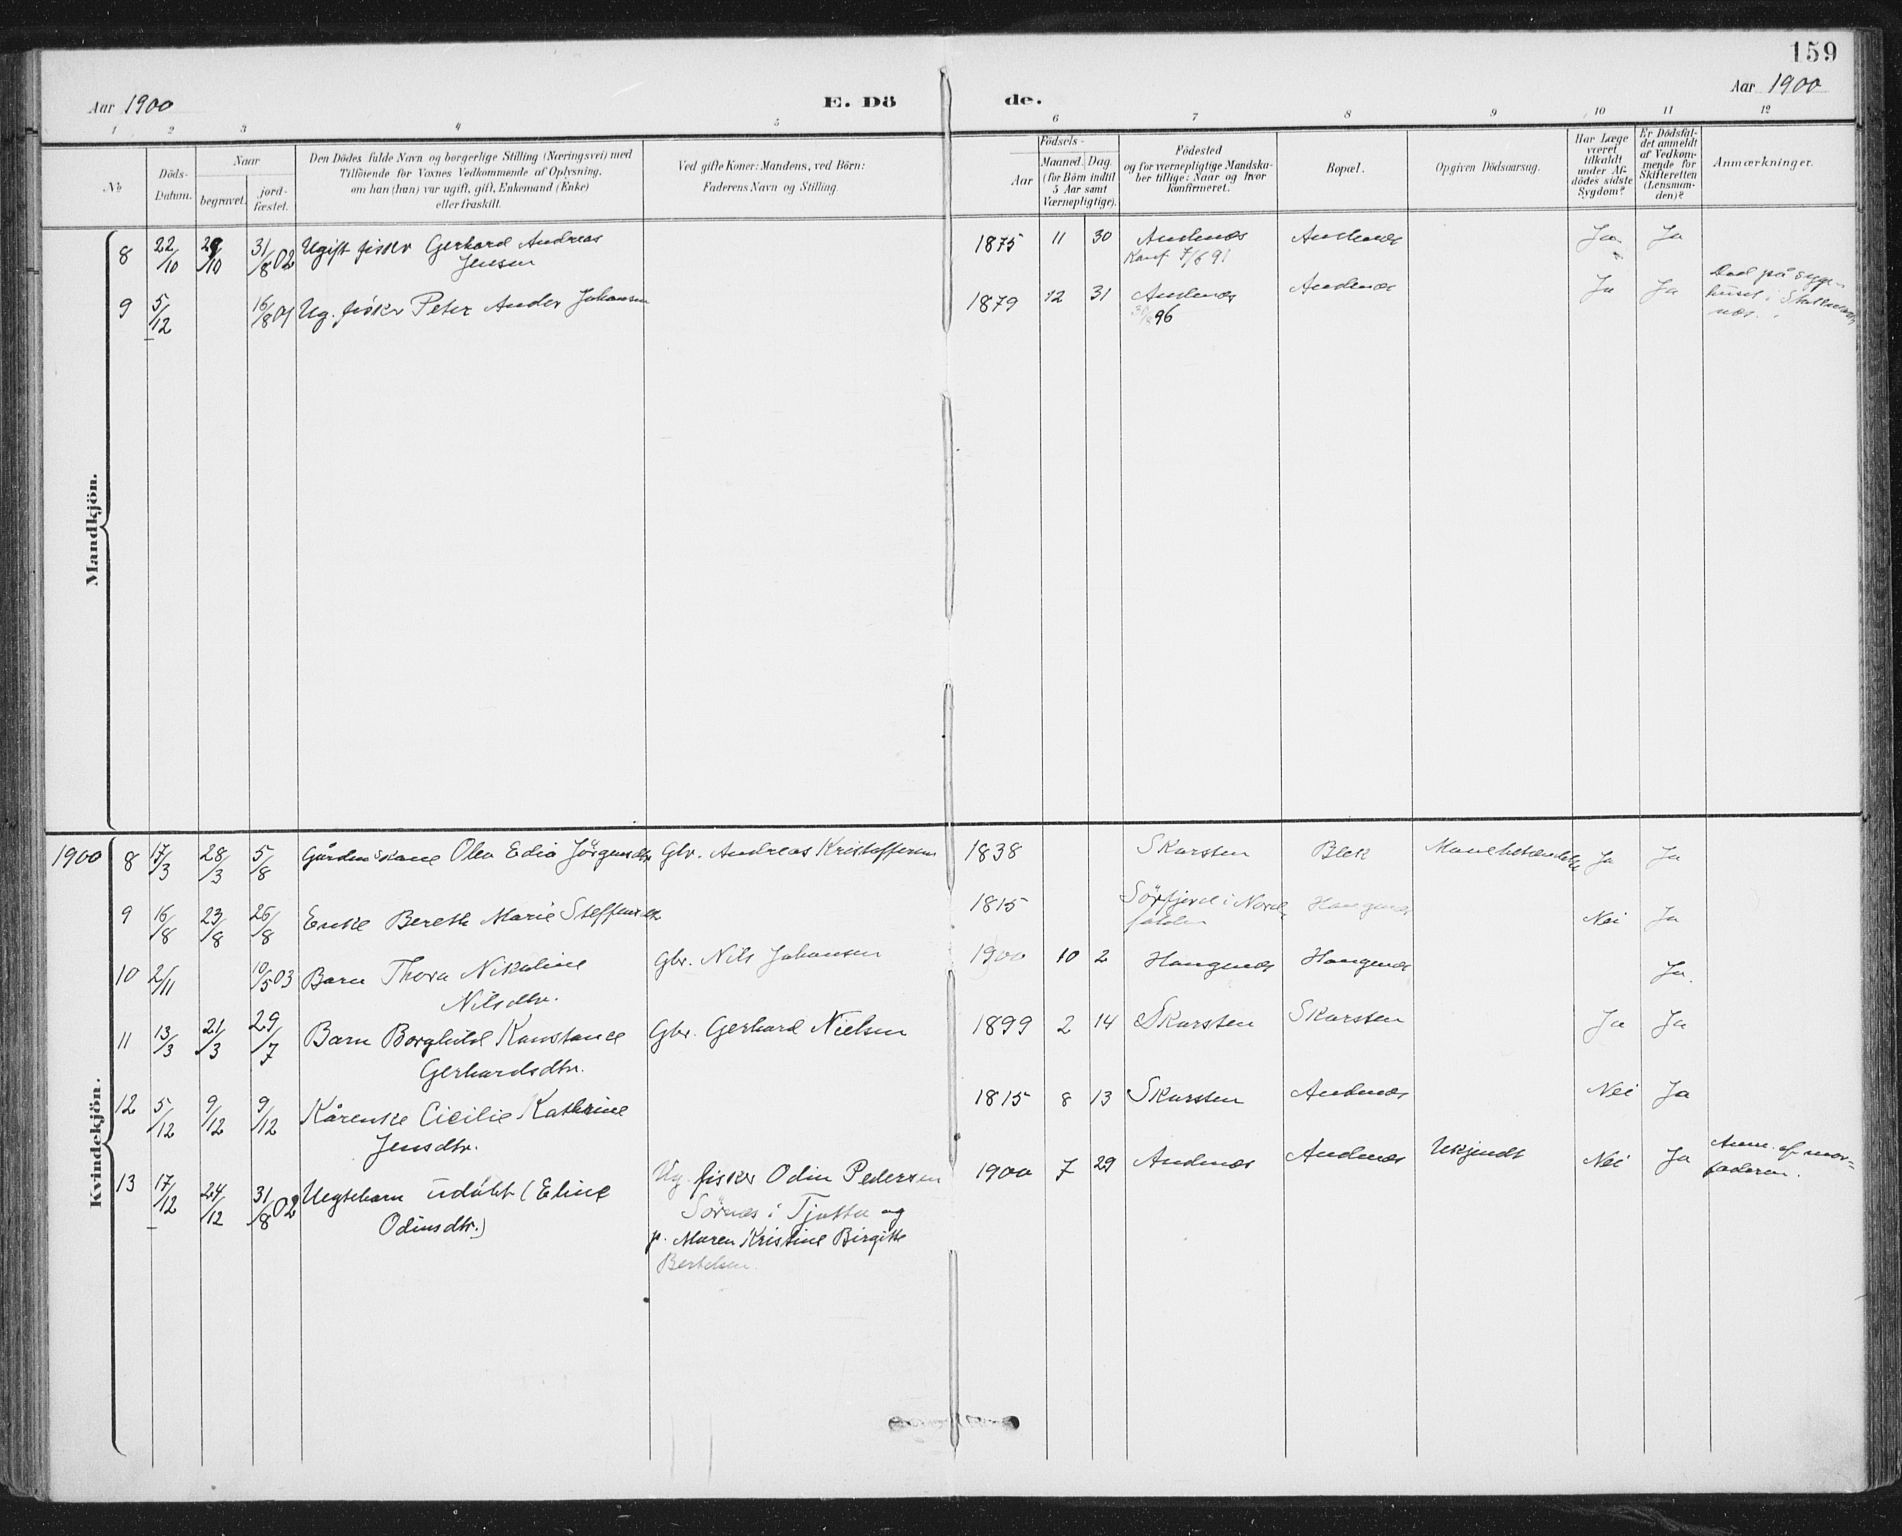 159
Aar 1900
E. Dö
de.
Aar 1900
1 2 3 4 5 6 7 8 9 10 11 12
No
Döds-
Datum.
Naar
begravet.
jord-
fæstet.
Den Dödes fulde Navn og borgerlige Stilling (Næringsvei) med
Tilföiende for Voxnes Vedkommende af Oplysning,
om han (hun) var ugift, gift, Enkemand (Enke)
eller fraskilt.
Ved gifte Koner: Mandens, ved Börn:
Faderens Navn og Stilling.
Födsels-
Aar
Maaned. Dag
(for Börn indtil
5 Aar samt
Værnepligtige).
Födested
og for værnepligtige Mandska-
ber tillige: Naar og hvor
konfirmeret.
Bopæl.
Opgiven Dödsaarsag.
Har Læge
været
tilkaldt
under Af-
dödes sidste
Sygdom?
Er Dödsfal-
det anmeldt
af Vedkom-
mende for
Skifteretten
(Lensman-
den)?
Anmærkninger.
Mandkjön.
8 22/10 29/10 31/8 02 Ugift fisker Gerhard Andreas
Jensen
1875 11 30 Andenæs Andenæs Ja Ja
Konf 7/6 91
9 5/12 16/8 01 Ug. fisker Peter Ander Johansen
1879 12 31 Andenæs Andenæs Ja Ja
96
Död på syge-
huset i
næs.
Kvindekjön.
1900 8 17/3 28/3 5/8 Gårdmskone Olea Edia Jörgensdtr Gbr. Andreas Kristoffersen 1838 Skarsten Blek Ja Ja
9 16/8 23/8 26/8 Enke Bereth Marie Steffensdtr 1815 Sörfjord i Nord- Haugenæs Nei Ja
folden
10 2/11 10/5 03 Barn Thora Nikoline Gbr. Nils Johansen 1900 10 2 Haugenæs Haugenæs Ja.
Nilsdtr.
11 13/3 21/3 29/7 Barn Borghild Konstance Gbr. Gerhard Nielsen 1899 2 14 Skarsten Skarsten Ja Ja
Gerhardsdtr.
12 5/12 9/12 9/12 Kårenke Cicilie Kathrine 1815 8 13 Skarsten Andenæs Nei Ja
Jensdtr.
13 17/12 24/12 31/8 02 Uegtebarn udöbt (Eline Ug. fisker Odin Pedersen 1900 7 29 Andenæs Andenæs Ukjendt Nei Ja Anm. af mor-
faderen.
Odinsdtr.) Sörnæs i Tjötta og
p. Maren Kristine Birgitte
Bertelsen.